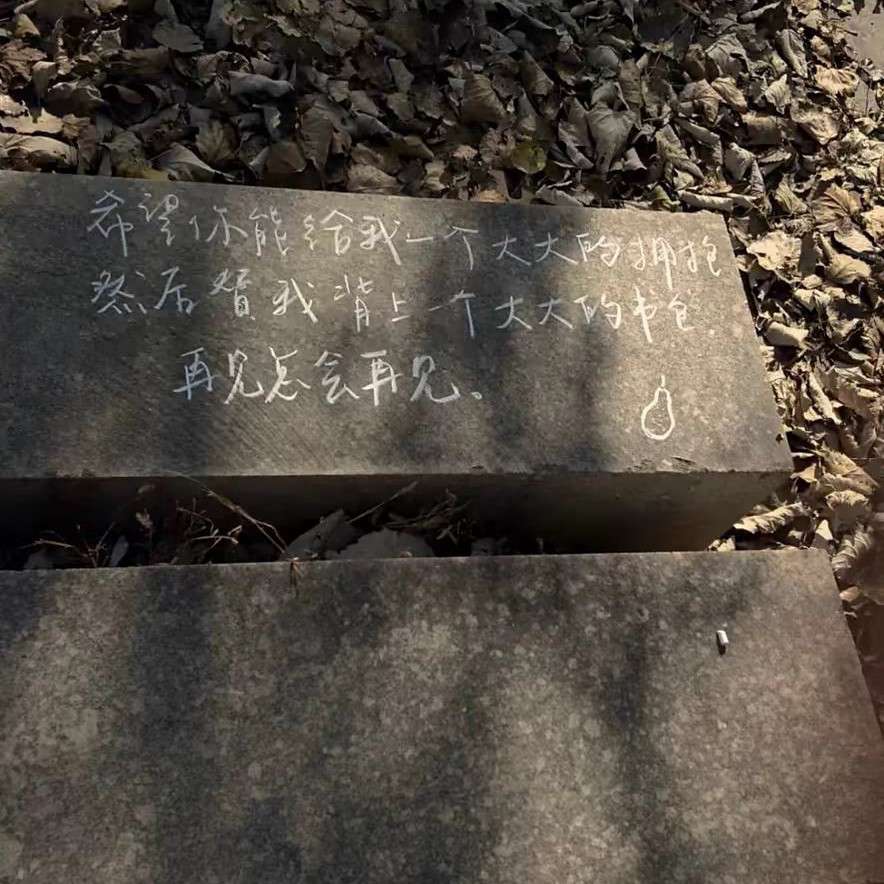 希望你能给我一个大大的拥抱
然后替我背上一个大大的书包
再见总会再见。